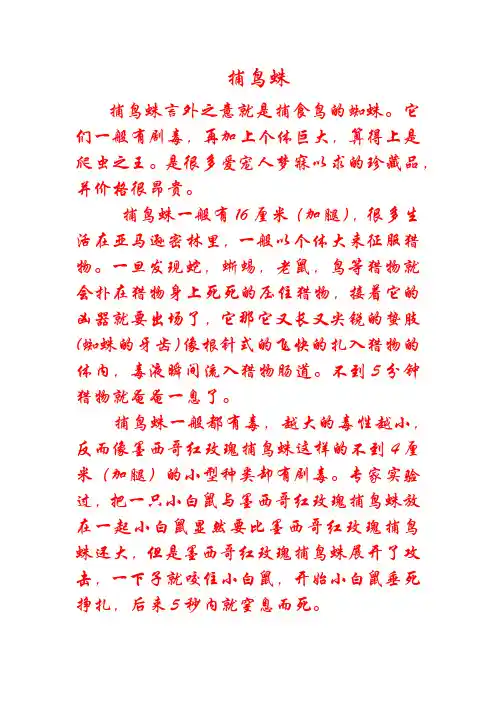 捕鸟蛛
捕鸟蛛言外之意就是捕食鸟的蜘蛛。它
们一般有剧毒，再加上个体巨大，算得上是
爬虫之王。是很多爱宠人梦寐以求的珍藏品，
并价格很昂贵。
捕鸟蛛一般有16厘米（加腿），很多生
活在亚马逊密林里，一般以个体大来征服猎
物。一旦发现蛇，蜥蜴，老鼠，鸟等猎物就
会扑在猎物身上死死的压住猎物，接着它的
凶器就要出场了，它那它又长又尖锐的螯肢
(蜘蛛的牙齿)像根针式的飞快的扎入猎物的
体内，毒液瞬间流入猎物肠道。不到5分钟
猎物就奄奄一息了。
捕鸟蛛一般都有毒，越大的毒性越小，
反而像墨西哥红玫瑰捕鸟蛛这样的不到4厘
米（加腿）的小型种类却有剧毒。专家实验
过，把一只小白鼠与墨西哥红玫瑰捕鸟蛛放
在一起小白鼠显然要比墨西哥红玫瑰捕鸟
蛛还大，但是墨西哥红玫瑰捕鸟蛛展开了攻
击，一下子就咬住小白鼠，开始小白鼠垂死
挣扎，后来5秒内就窒息而死。